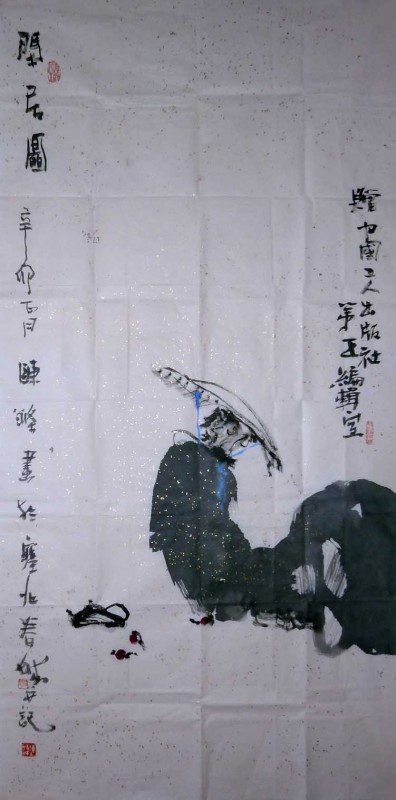 閑居圖
辛卯百陳畫於塞北春城并記
贈中國工人出版社
第五編輯室